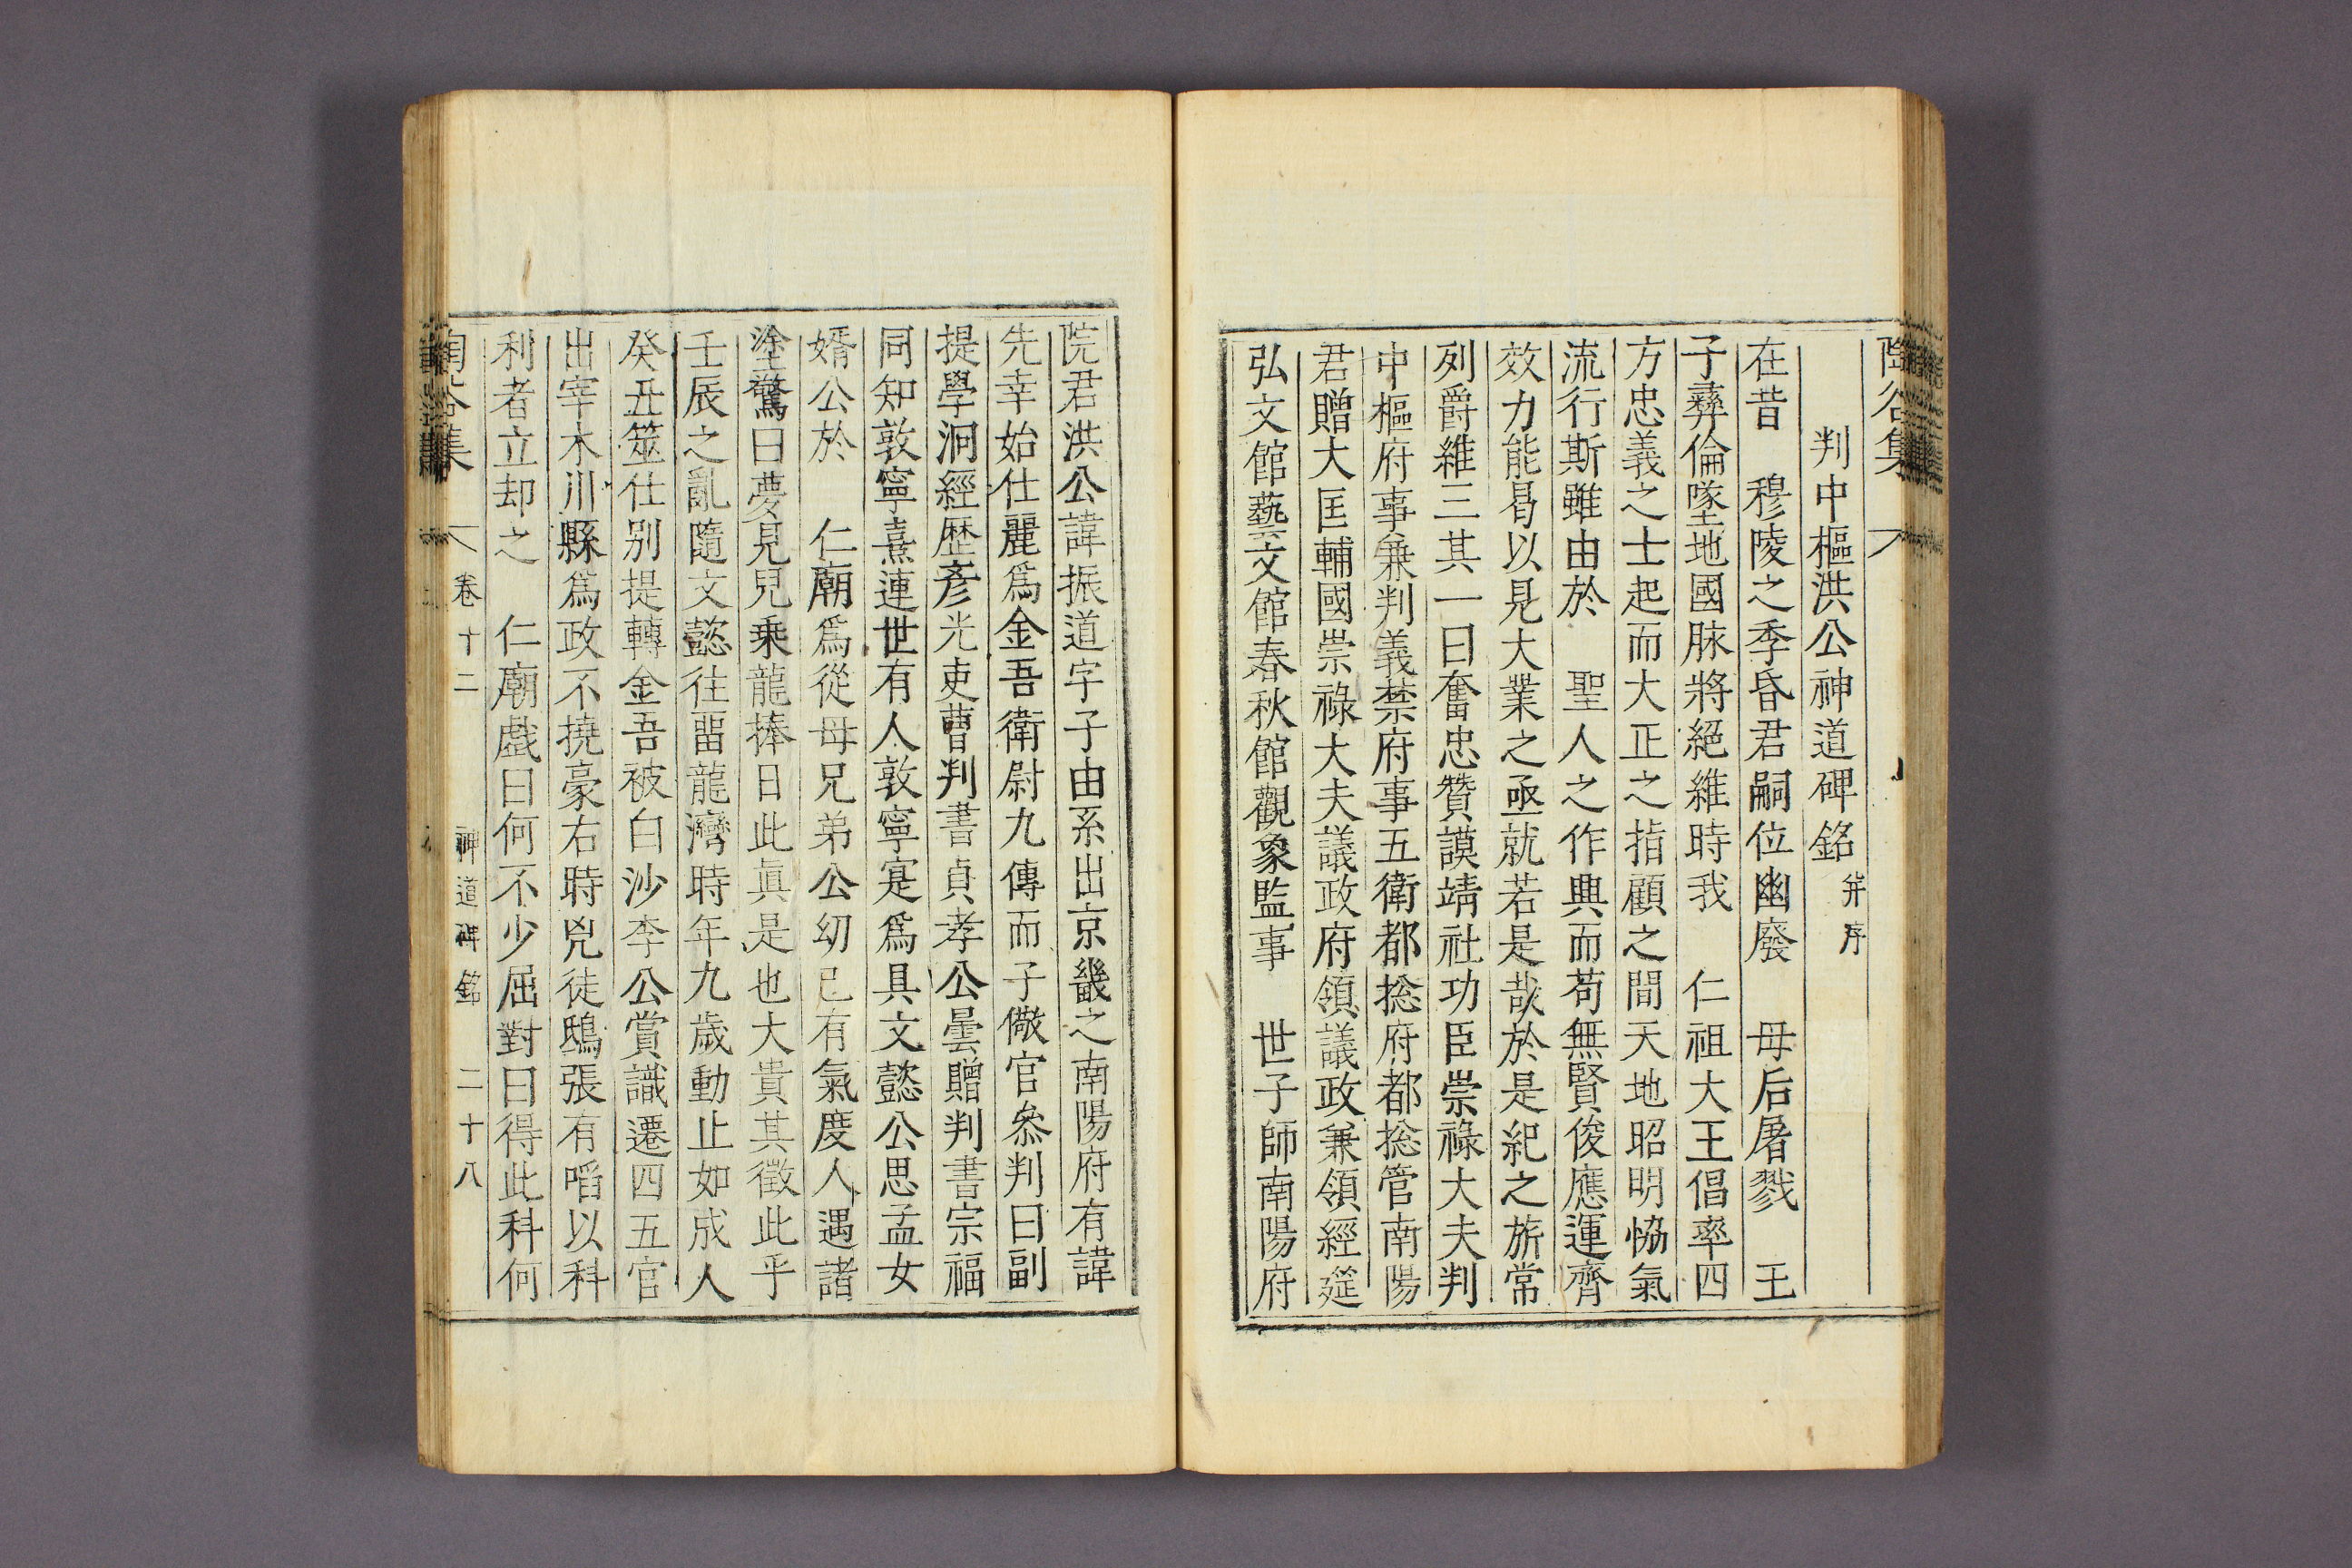 陶谷集
判中樞洪公神道碑銘 并序
在昔 穆陵之季昏君嗣位幽廢 母后屠戮 王
子彝倫墜地國脉將絕維時我 仁祖大王倡率四
方忠義之士起而大正之指顧之間天地昭明恊氣
流行斯雖由於 聖人之作典而苟無賢俊應運齊
效力能曷以見大業之亟就若是哉於是紀之旂常
列爵維三其一曰奮忠贊謨靖社功臣崇祿大夫判
中樞府事兼判義禁府事五衛都摠府都摠管南陽
君贈大匡輔國崇祿大夫議政府領議政兼領經筵
弘文館藝文館春秋館觀象監事 世子師南陽府
院君洪公諱振道字子由系出京畿之南陽府有諱
先幸始仕麗爲金吾衛尉九傳而子儆官叅判曰副
提學泂經歴彥光吏曹判書貞孝公曇贈判書宗福
同知敦寧熹連世有人敦寧寔爲具文懿公思孟女
婿公於 仁廟爲從母兄弟公幼已有氣度人遇諸
塗驚曰夢見兒乗龍捧日此眞是也大貴其徵此乎
壬辰之亂隨文懿往畱龍灣時年九歲動止如成人
癸丑筮仕别提轉金吾被白沙李公賞識遷四五官
出宰木川縣爲政不撓豪右時兇徒鴟張有㗖以科
利者立却之 仁廟戲曰何不少屈對曰得此科何
陶谷集 卷十二 神道碑銘 二十八